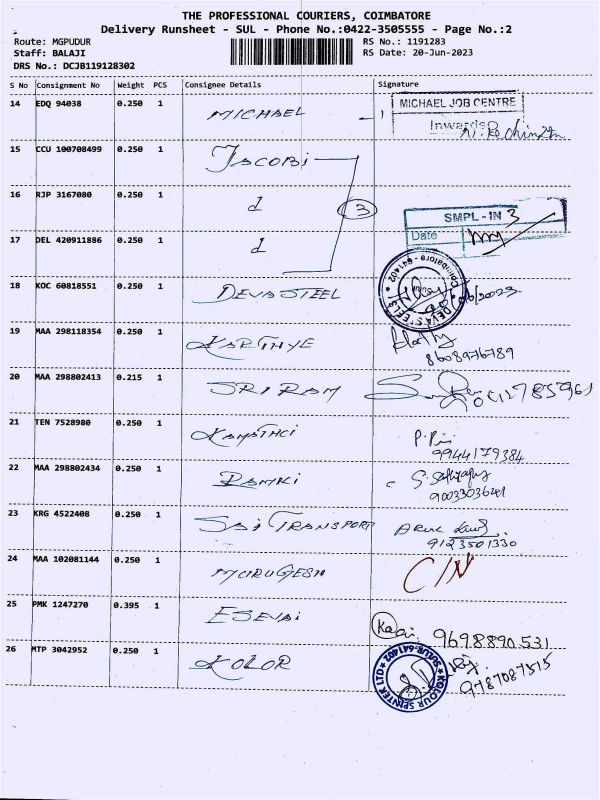 THE PROFESSIONAL COURIERS, COIMBATORE
Delivery Runsheet - SUL - Phone No.:0422-3505555 - Page No.:2
Route: MGPUDUR RS No.: 1191283
Staff: BALAJI RS Date: 20-Jun-2023
DRS No.: DCJB119128302
S No Consignment No Weight PCS Consignee Details Signature
14 EDQ 94038 0.250 1 MICHAEL MICHAEL JOB CENTRE
Inwards
15 CCU 100708499 0.250 1 JACOBI
16 RJP 3167080 0.250 1 d 3 SMPL - IN 3
17 DEL 420911886 0.250 1 d Date
18 KOC 60818551 0.250 1 DEVA STEEL DEVA STEELS Coimbatore - 641402
19 MAA 298118354 0.250 1 KARTHYE
8608976789
20 MAA 298802413 0.215 1 SRI RAM
21 TEN 7528980 0.250 1
9944179384
22 MAA 298802434 0.250 1 RAMKI
23 KRG 4522408 0.250 1 SRI TRANSPORT Arul
9123501330
24 MAA 102081144 0.250 1 MURUGESH C/N
25 PMK 1247270 0.395 1 ESEVAI
9698890531
26 MTP 3042952 0.250 1 KOLOR KOLOUR SPINTEK LTD SULUR-641402
9787087515